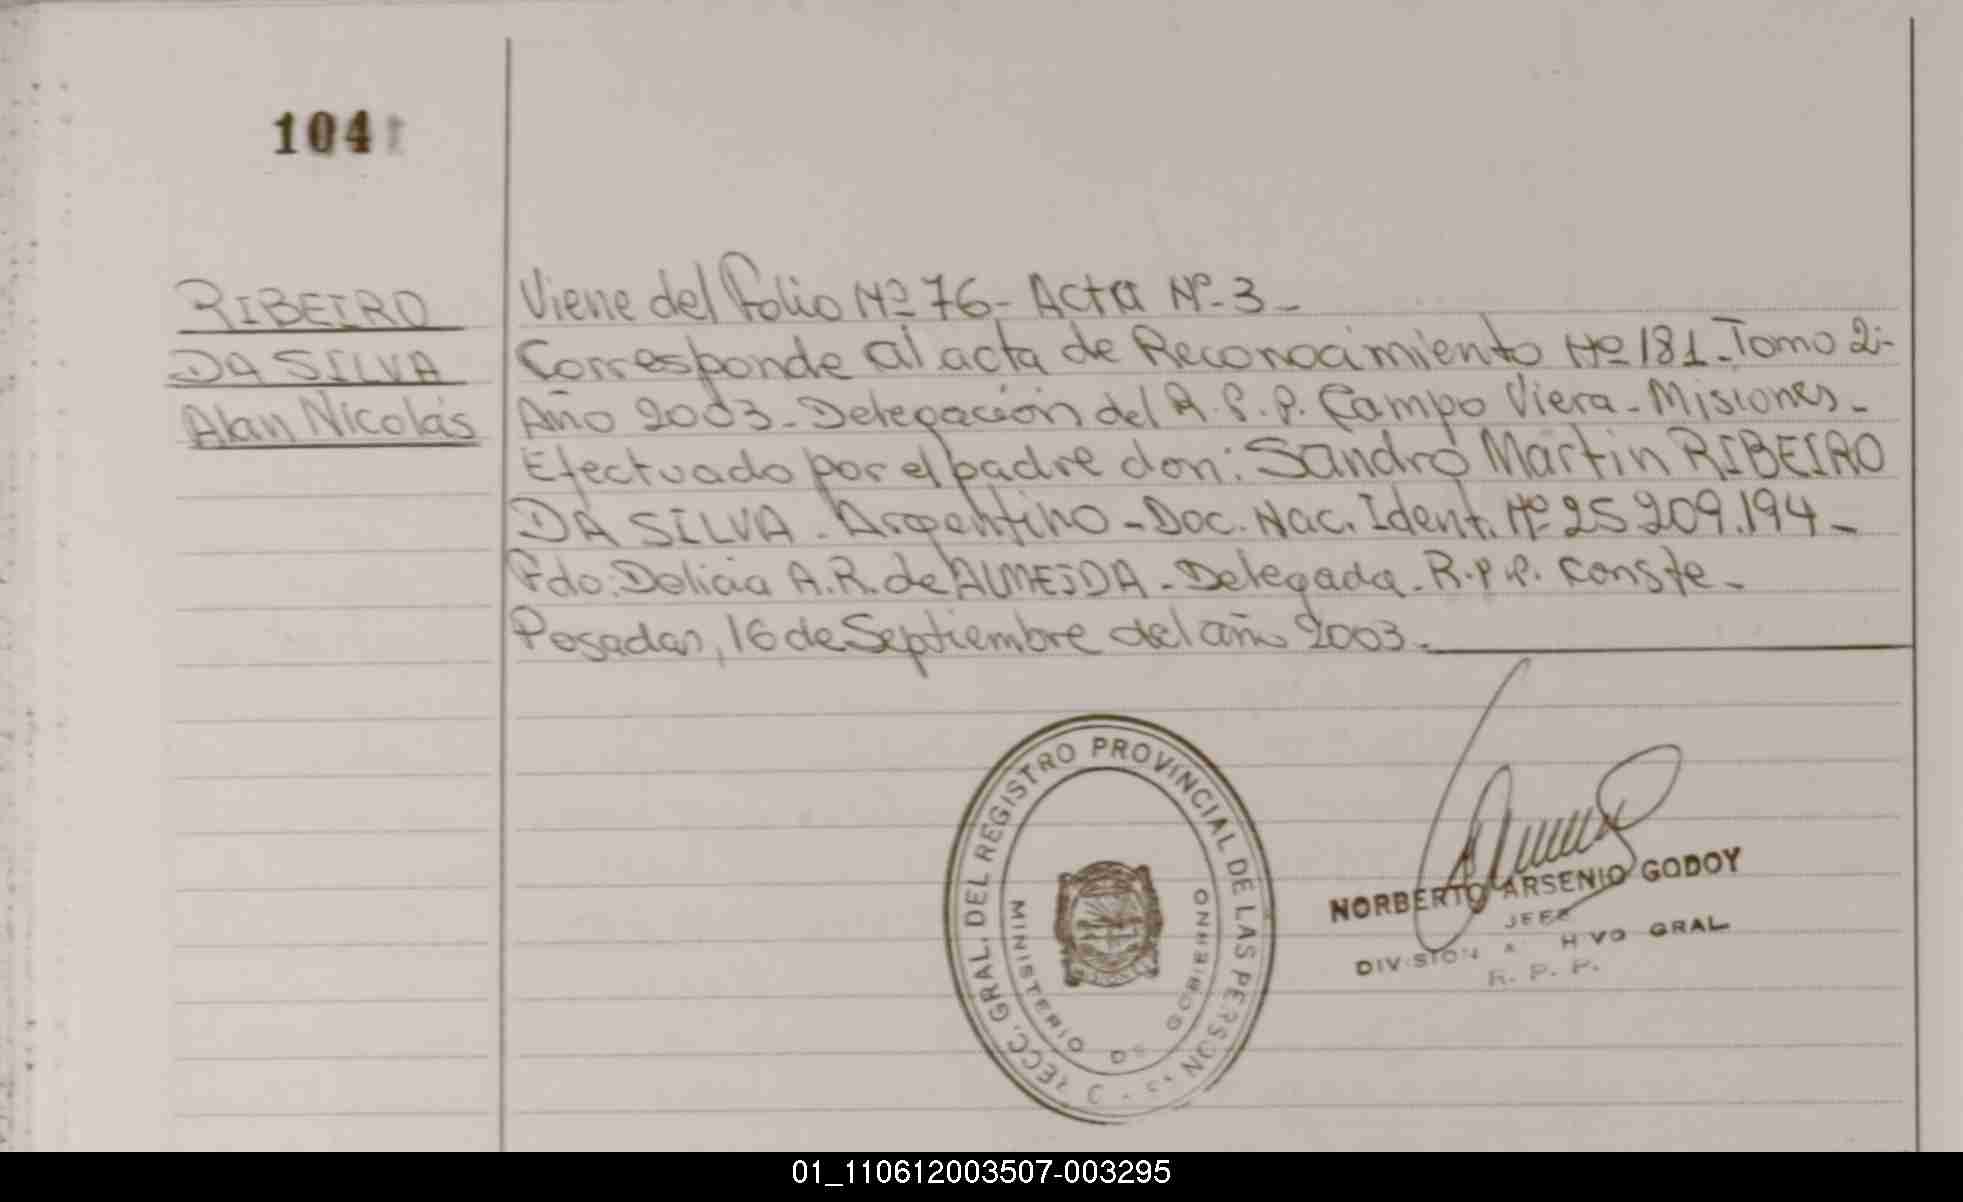 104
RIBEIRO
DA SILVA
Alan Nicolás
Viene del Folio Nº 76 - Acta Nº - 3 -
Corresponde al acta de Reconocimiento Nº 181 - Tomo 2 -
Año 2003 - Delegación del R.P.P. Campo Viera - Misiones -
Efectuado por el padre don: Sandro Martin RIBEIRO
DA SILVA . Argentino - Doc. Nac. Ident. Nº 25 209.194 -
Fdo: Delicia A.R. de ALMEIDA - Delegada - R.P.P. Conste -
Posadas, 16 de Septiembre del año 2003 -
RECC. GRAL. DEL REGISTRO PROVINCIAL DE LAS PERSON
MINISTERIO DE GOBIERNO
NORBERTO ARSENIO GODOY
JEFE
DIVISION A HIVO GRAL
R. P. P.
01_110612003507-003295